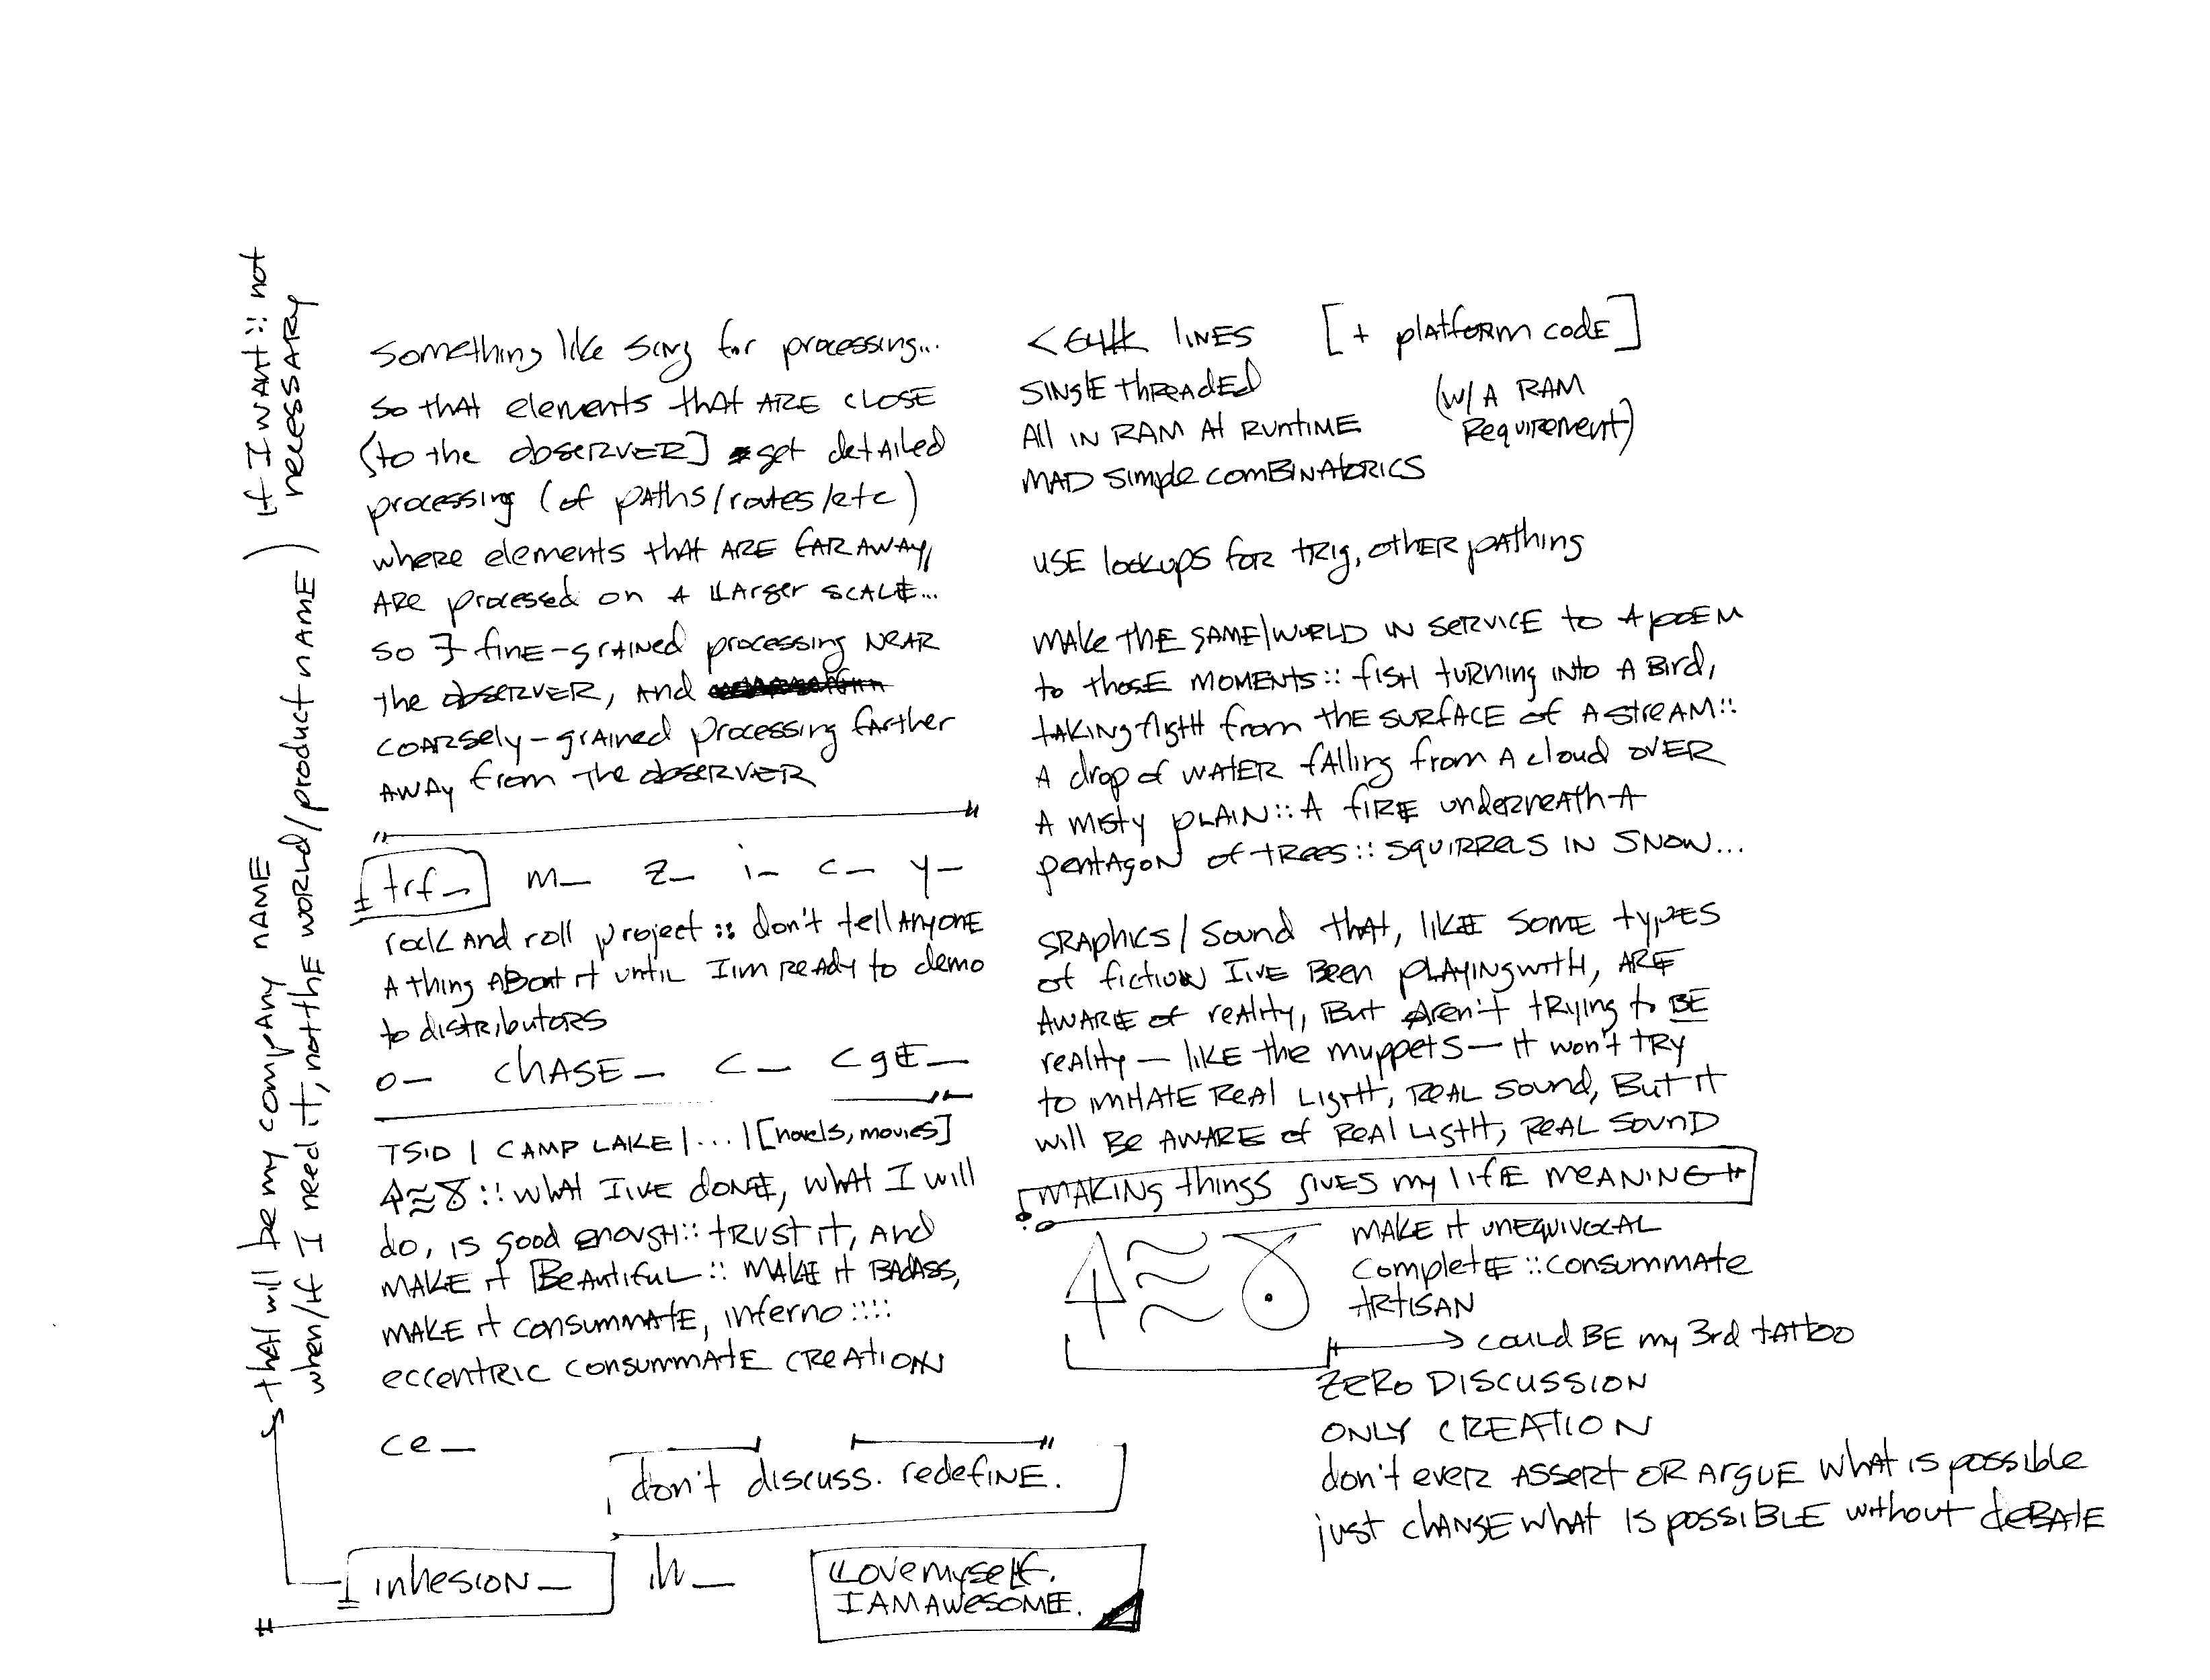 that will be my company name
when/if I need it, not the world/product name) if I want :: not
necessary
something like for processing...
so that elements that are close
(to the observer] get detailed
processing (of paths/routes/etc)
where elements that are far away,
are processed on a larger scale...
so ∃ fine-grained processing near
the observer, and
coarsely-grained processing farther
away from the observer
trf_ m_ z_ i_ c_ y_
rock and roll project :: don't tell anyone
a thing about it until I'm ready to demo
to distributors
o_ chase_ c_ cge_
TSID | CAMP LAKE | ... | [novels, movies]
4≈8 :: what I've done, what I will
do, is good enough :: trust it, and
make it beautiful :: make it badass,
make it consummate, inferno ::::
eccentric consummate creation
ce_
don't discuss. redefine.
inhesion_ ih_
I love myself.
I am awesome.
< 64k lines [+ platform code]
single threaded
all in RAM at runtime (w/ a RAM
requirement)
mad simple combinatorics
use lookups for trig, other pathing
make the game/world in service to a poem
to those moments :: fish turning into a bird,
taking flight from the surface of a stream ::
a drop of water falling from a cloud over
a misty plain :: a fire underneath a
pentagon of trees :: squirrels in snow...
graphics/sound that, like some types
of fiction I've been playing with, are
aware of reality, but aren't trying to BE
reality — like the muppets — it won't try
to imitate real light, real sound, but it
will be aware of real light, real sound
making things gives my life meaning
4≈8 make it unequivocal
complete :: consummate
artisan
could be my 3rd tattoo
ZERO DISCUSSION
ONLY CREATION
don't ever assert or argue what is possible
just change what is possible without debate